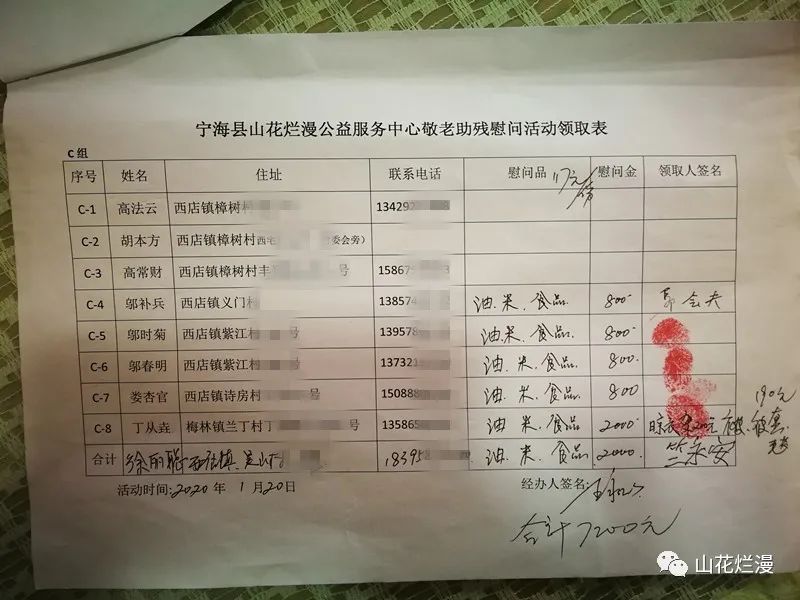 宁海县山花烂漫公益服务中心敬老助残慰问活动领取表
C 组
序号 姓名 住址 联系电话 慰问品 117元/份 慰问金 领取人签名
C-1 高法云 西店镇樟树村 13429
C-2 胡本方 西店镇樟树村 西 委会旁）
C-3 高常财 西店镇樟树村丰 号 15867
C-4 邬补兵 西店镇义门村 13857 油.米.食品. 800
C-5 邬时菊 西店镇紫江村 号 13957 油.米.食品. 800.
C-6 邬春明 西店镇紫江村 号 13732 油.米.食品. 800.
C-7 娄杏官 西店镇诗房村 号 15088 油.米.食品. 800
190元
C-8 丁从垚 梅林镇兰丁村丁 号 13586 油.米.食品. 2000
合计 徐丽 西店镇. 18395 油.米.食品. 2000. 竺永安
活动时间:2020 年 1 月 20 日 经办人签名:
合计7200元
山花烂漫